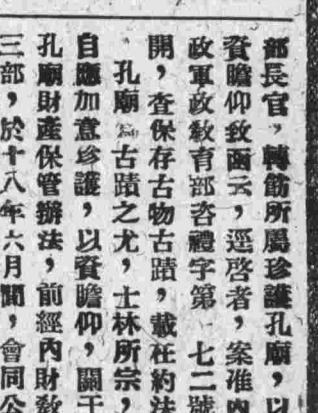 部長官，轉飭所屬珍護孔廟，以
資瞻仰致函云，逕啓者，案准內
政軍政敎育部咨禮字第 七二號
開，查保存古物古蹟，載在約法
孔廟爲古蹟之尤，士林所宗，
自應加意珍護，以資瞻仰，關于
孔廟財產保管辦法，前經內財敎
三部，於十八年六月間，會同公